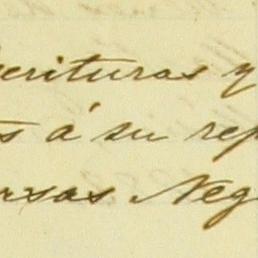 scrituras y
s á su rep
ersas Neg